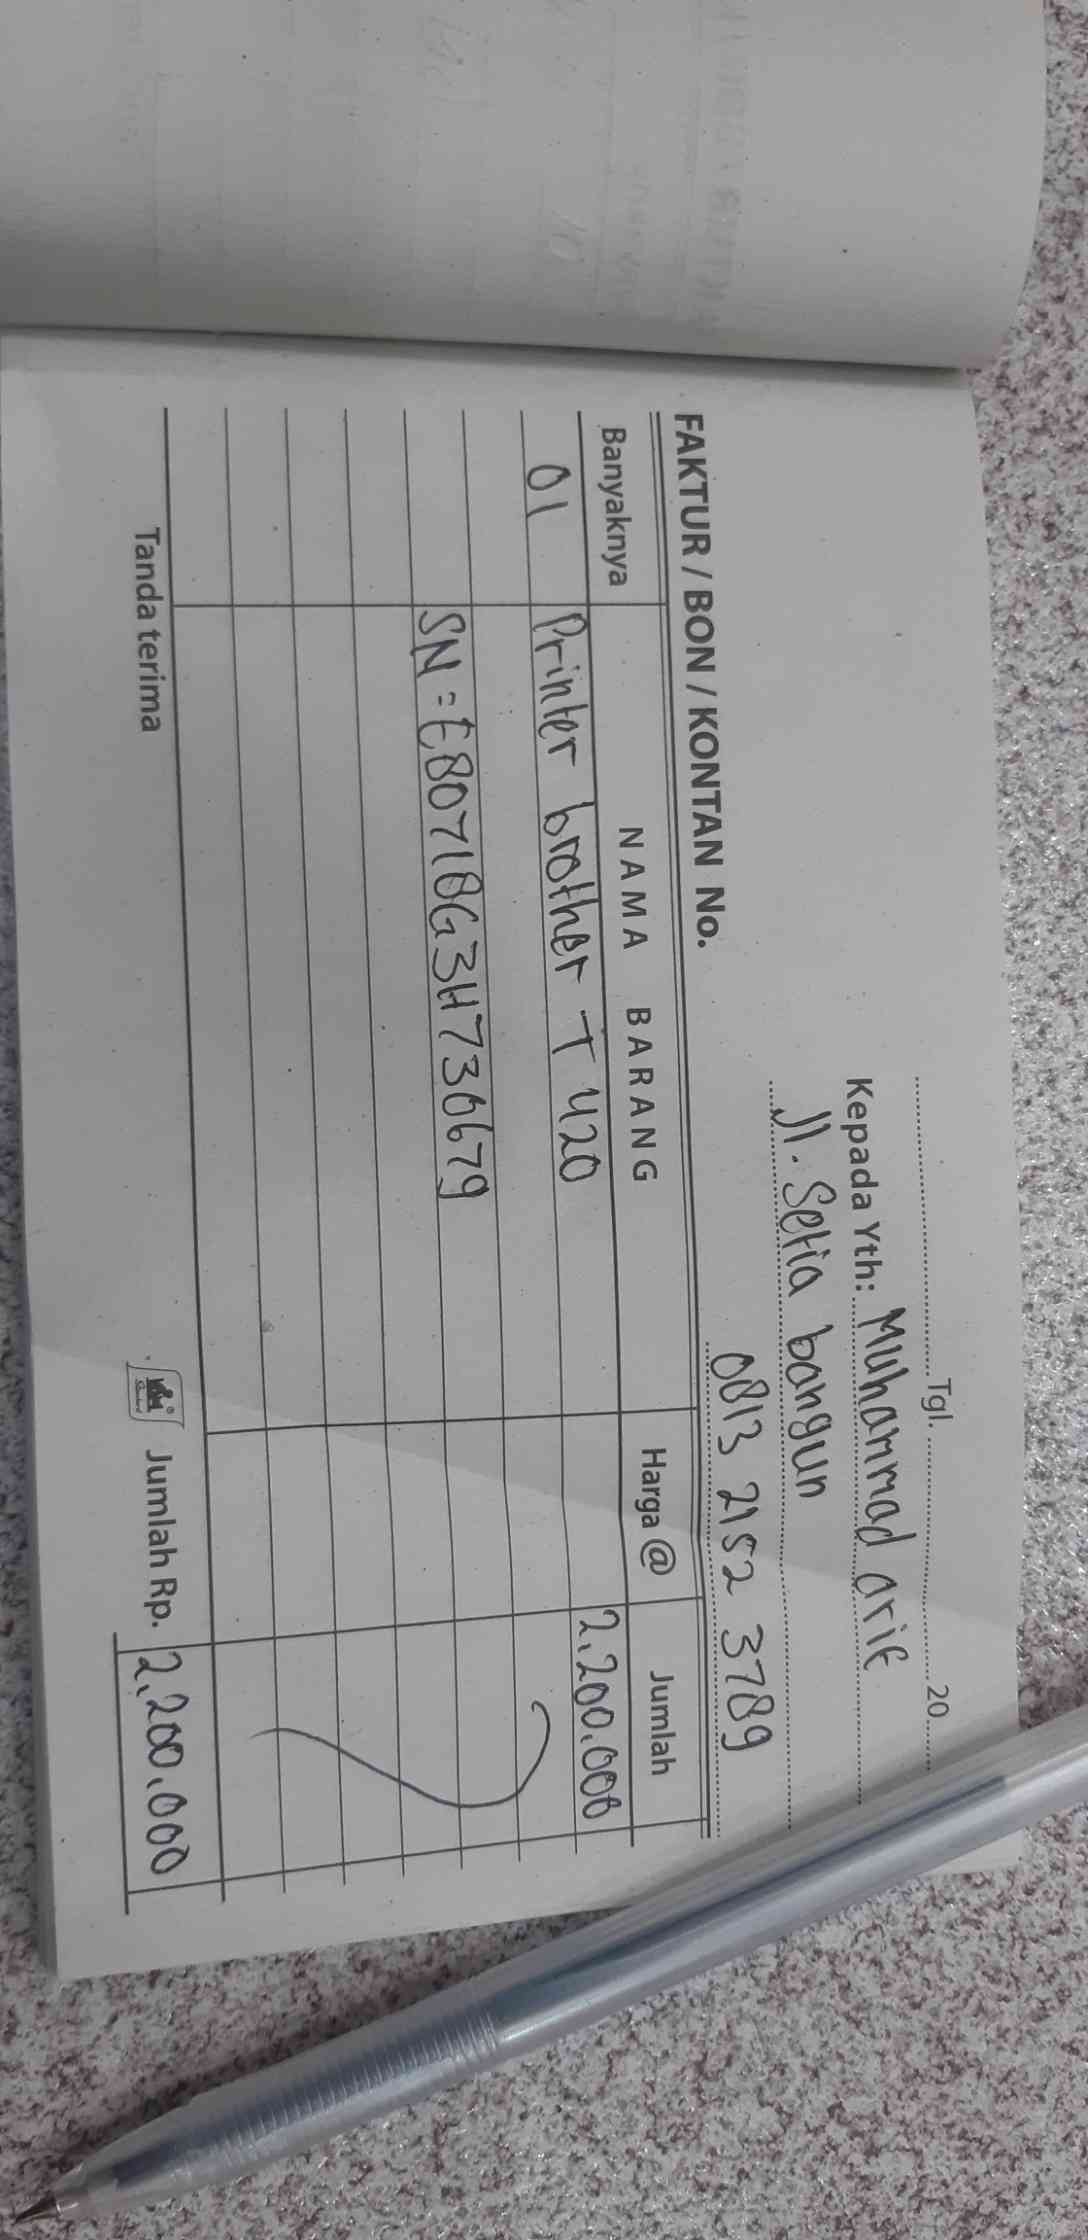 Tgl. 20
Kepada Yth: Muhammad arif
Jl. Setia bangun
0813 2152 3789
FAKTUR / BON / KONTAN No.
Banyaknya NAMA BARANG Harga @ Jumlah
01 Printer brother T 420 2.200.000
SN = E80718G3H736679
Tanda terima Jumlah Rp. 2.200.000